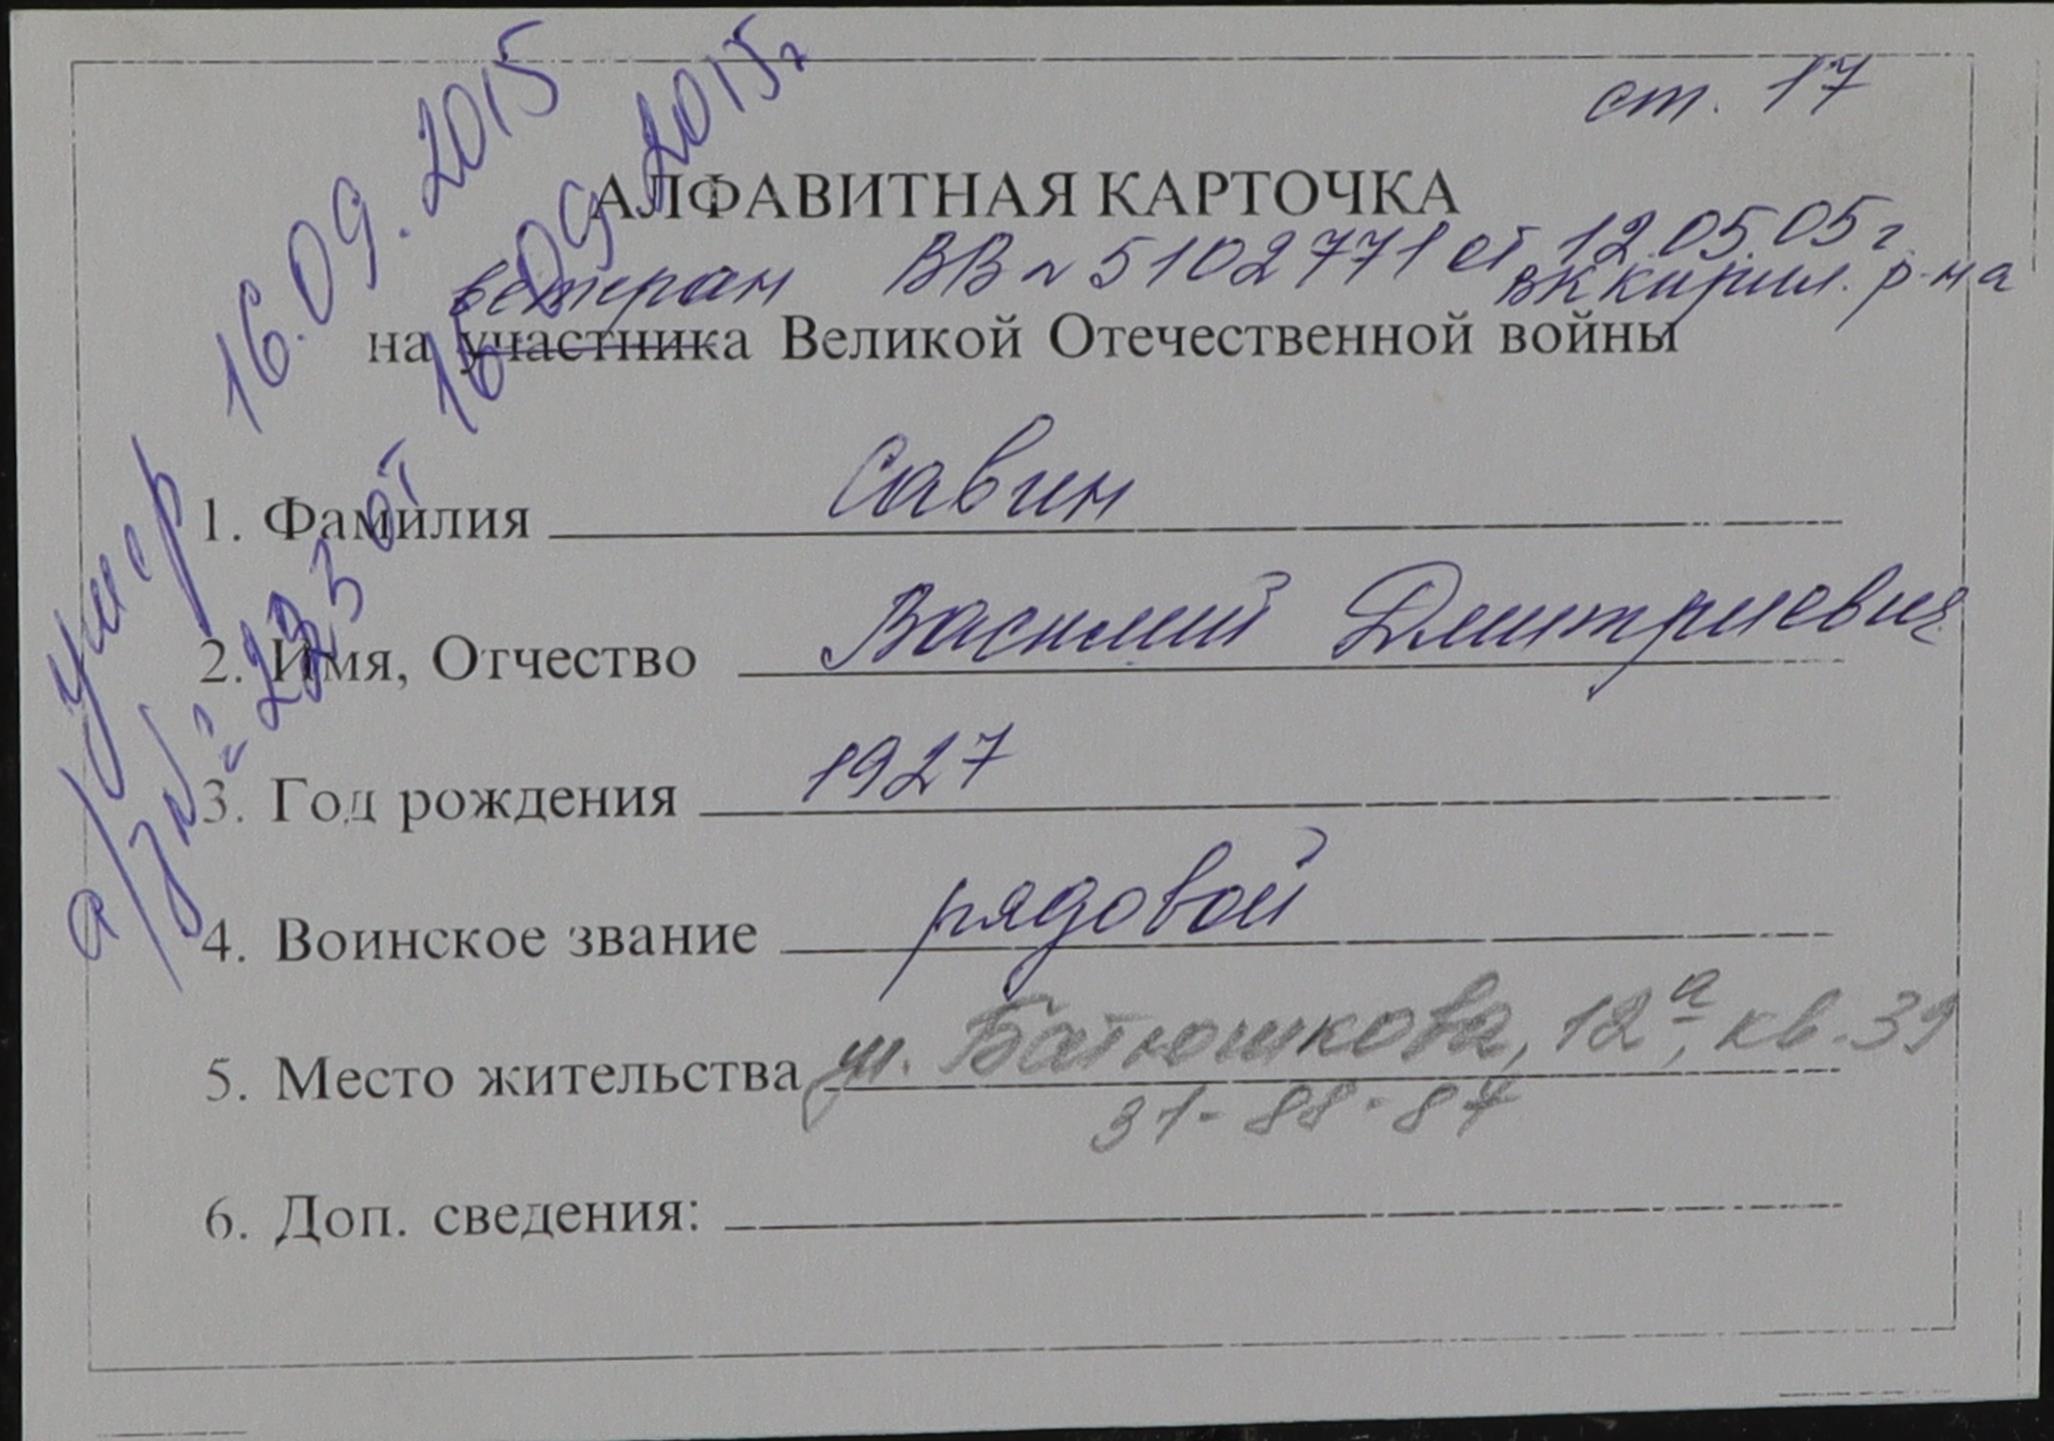 ст. 17
АЛФАВИТНАЯ КАРТОЧКА
ветеран ВВ № 5102771 от 12.05.05г.
ВК Кирил. р-на
на участника Великой Отечественной войны
1. Фамилия Савин
2. Имя, Отчество Василий Дмитриевич
3. Год рождения 1927
4. Воинское звание рядовой
5. Место жительства ул. Батюшкова, 12а, кв. 39
31-88-87
6. Доп. сведения:
умер 16.09.2015
а/з № 223 от 16.09.2015г